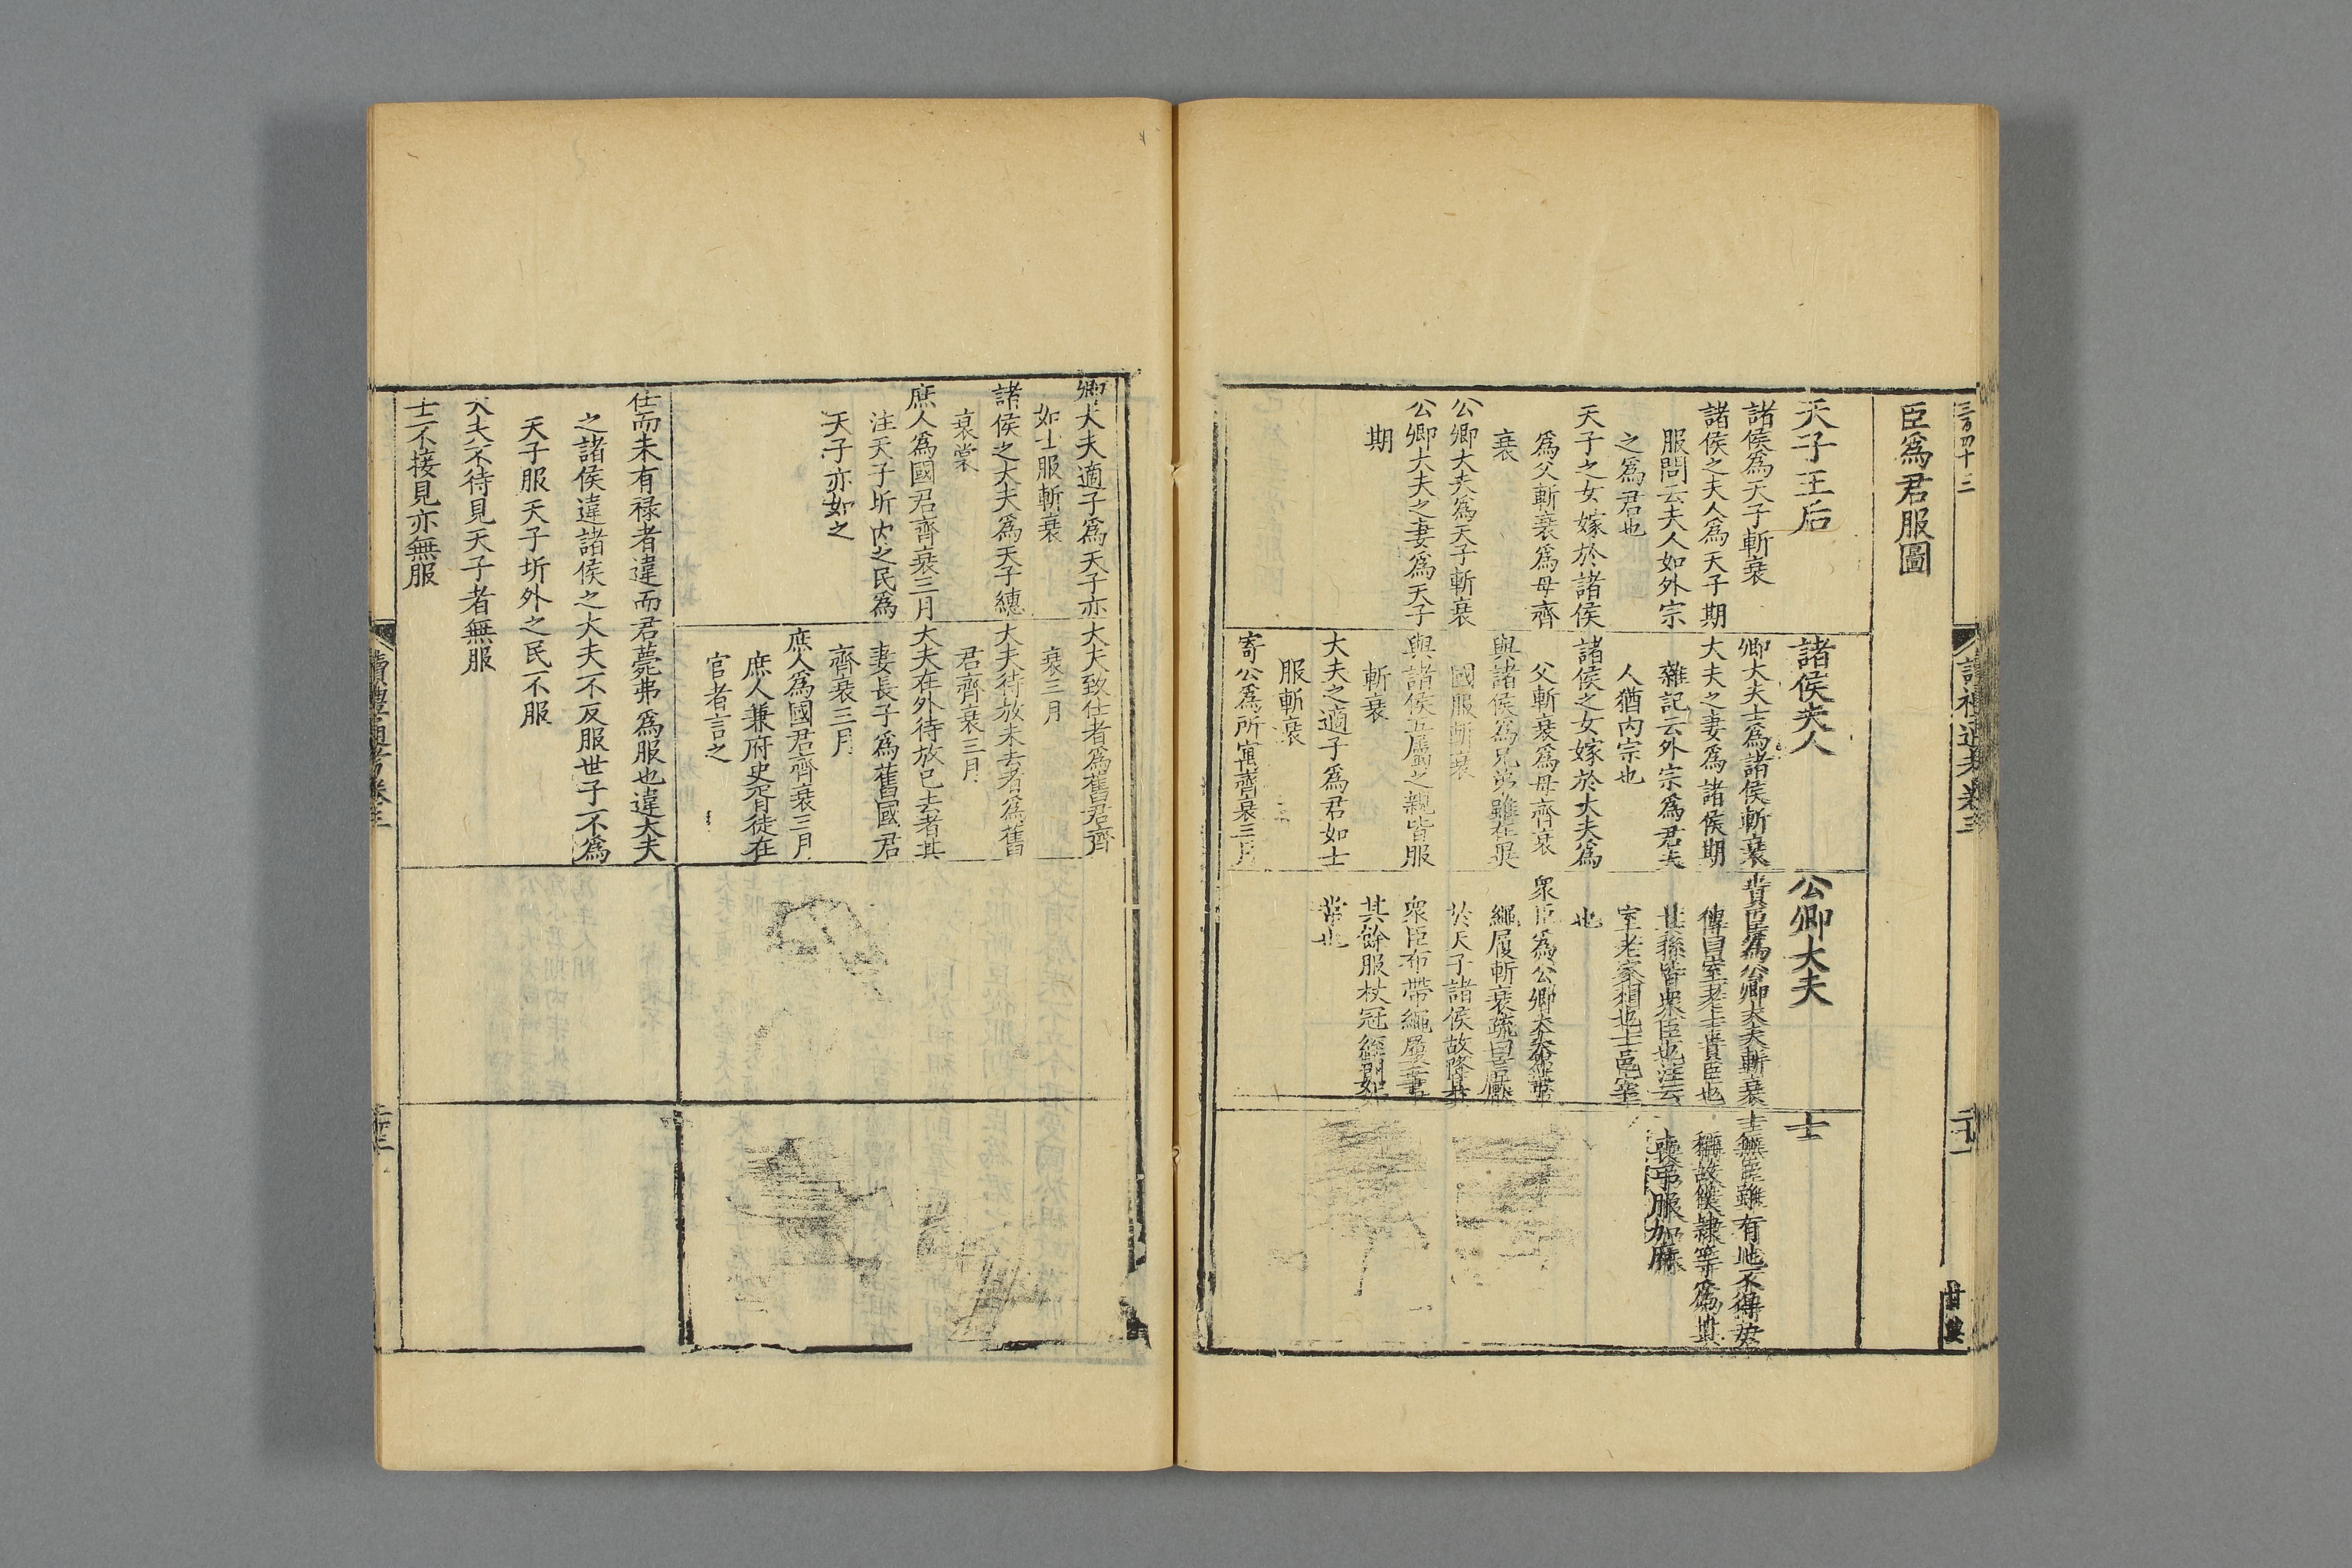 臣爲君服圖
天子王后
諸侯爲天子斬衰
諸侯之夫人爲天子期
服問云夫人如外宗
之爲君也
天子之女嫁於諸侯
爲父斬衰爲母齊
衰
公卿大夫爲天子斬衰
公卿大夫之妻爲天子
期
諸侯夫人
卿大夫士爲諸侯斬衰
大夫之妻爲諸侯期
雜記云外宗爲君夫
人猶內宗也
諸侯之女嫁於大夫爲
父斬衰爲母齊衰
與諸侯爲兄弟雖在異
國服斬衰
與諸侯五屬之親皆服
斬衰
大夫之適子爲君如士
服斬衰
寄公爲所寓齊衰三月
公卿大夫
貴臣爲公卿大夫斬衰
傳曰室老士貴臣也
其餘皆衆臣也注云
室老家相也士邑宰
也
衆臣爲公卿大夫布帶
繩屨斬衰疏曰厭
於天子諸侯故降其
衆臣布帶繩屨二事
其餘服杖冠絰則如
常也
士
士無臣雖有地不得
稱故僕隸等爲其
喪弔服加麻
卿大夫適子爲天子亦
如士服斬衰
諸侯之大夫爲天子繐
衰裳
庶人爲國君齊衰三月
注天子圻內之民爲
天子亦如之
大夫致仕者爲舊君齊
衰三月
大夫待放未去者爲舊
君齊衰三月
大夫在外待放已去者其
妻長子爲舊國君
齊衰三月
庶人爲國君齊衰三月
庶人兼府史胥徒在
官者言之
仕而未有祿者違而君薨弗爲服也違大夫
之諸侯違諸侯之大夫不反服世子不爲
天子服天子圻外之民不服
大夫不待見天子者無服
士不接見亦無服
讀禮通考卷三